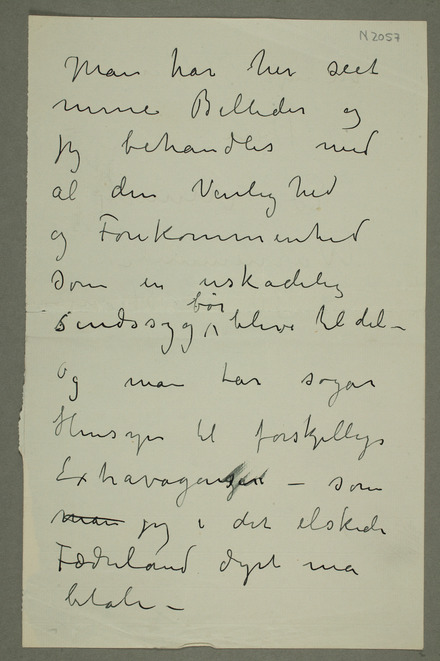 N 2057
Man har her seet
mine Billeder og
jeg behandles med
al den Venlighed
og Forekommenhed
som en uskadelig
bør
sindssyg blive til del –
Og man tar sogar
Hensyn til forskjellige
Extravaganser – som
man jeg i det elskede
Fædreland dyrt må
betale –